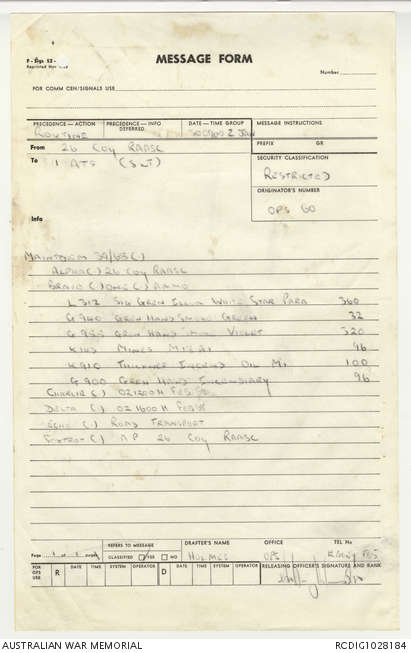 F-Sigs 52-
MESSAGE FORM
Number
FOR COMM CEN/SIGNALS USE
PRECEDENCE — ACTION PRECEDENCE — INFO DATE — TIME GROUP MESSAGE INSTRUCTIONS
DEFERRED
ROUTINE 300900 Z JAN
PREFIX GR
From 26 COY RAASC
To 1 ATS (S&T)
SECURITY CLASSIFICATION
RESTRICTED
ORIGINATOR'S NUMBER
OPS 60
Info
MAINTDEM 39/68 (.)
ALPHA (.) 26 COY RAASC
BRAVO (.) ONE (.) AMMO
L 312 SIG GREN ILLUM WHITE STAR PARA 360
G 940 GREN HAND SMOKE GREEN 32
G 955 GREN HAND SMOKE VIOLET 320
K143 MINES M18A1 96
K910 THICKNER INCEND OIL M1 100
G 900 GREN HAND INCENDIARY 96
CHARLIE (.) 021200H FEB 68
DELTA (.) 021600H FEB 68
ECHO (.) ROAD TRANSPORT
FOXTROT (.) AP 26 COY RAASC
Page 1 of 1 pages
REFERS TO MESSAGE DRAFTER'S NAME OFFICE TEL No
CLASSIFIED YES NO
HOLMES OPS
FOR OPS USE R DATE TIME SYSTEM OPERATOR D DATE TIME SYSTEM OPERATOR RELEASING OFFICER'S SIGNATURE AND RANK
AUSTRALIAN WAR MEMORIAL RCDIG1028184